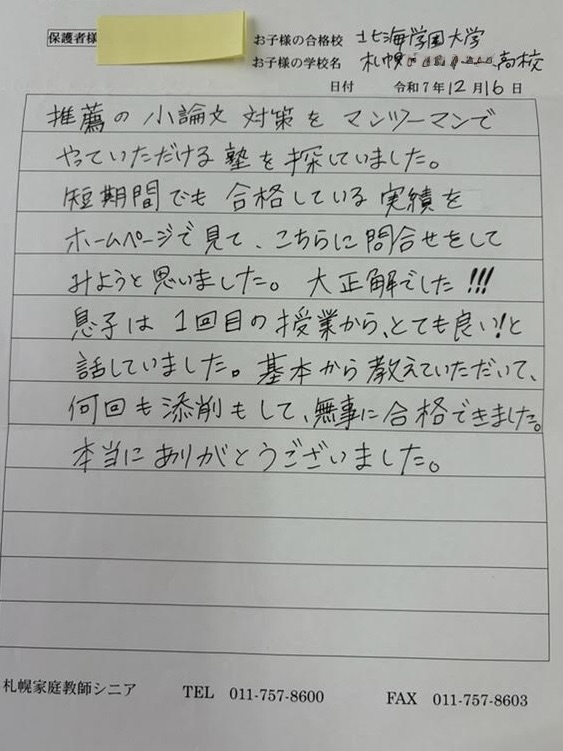 保護者様 お子様の合格校 北海学園大学
お子様の学校名 札幌 高校
日付 令和7年12月16日
推薦の小論文対策をマンツーマンで
やっていただける塾を探していました。
短期間でも合格している実績を
ホームページで見て、こちらに問合せをして
みようと思いました。大正解でした!!!
息子は1回目の授業から、とても良い!と
話していました。基本から教えていただいて、
何回も添削もして、無事に合格できました。
本当にありがとうございました。
札幌家庭教師シニア TEL 011-757-8600 FAX 011-757-8603